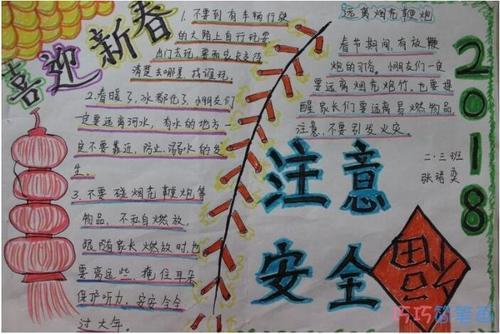 喜迎新春
1.不要到有车辆行驶
的大路上自行玩耍
出门去玩,要
清楚去哪里,找谁玩。
2.春暖了,冰都化了,小朋友们一
定要远离河水,有水的地方一
定不要靠近,防止溺水的发
生。
3.不要碰烟花鞭炮等
物品,不私自燃放,
跟随家长燃放时,也
要离远些,捂住耳朵
保护听力,安安全全
过大年。
注意
安全
远离烟花鞭炮
春节期间,有放鞭
炮的习俗。小朋友们一定
要远离烟花炮竹,也要提
醒家长们要远离易燃物品
注意,不要引发火灾。
二·三班
2018
福
巧巧简笔画